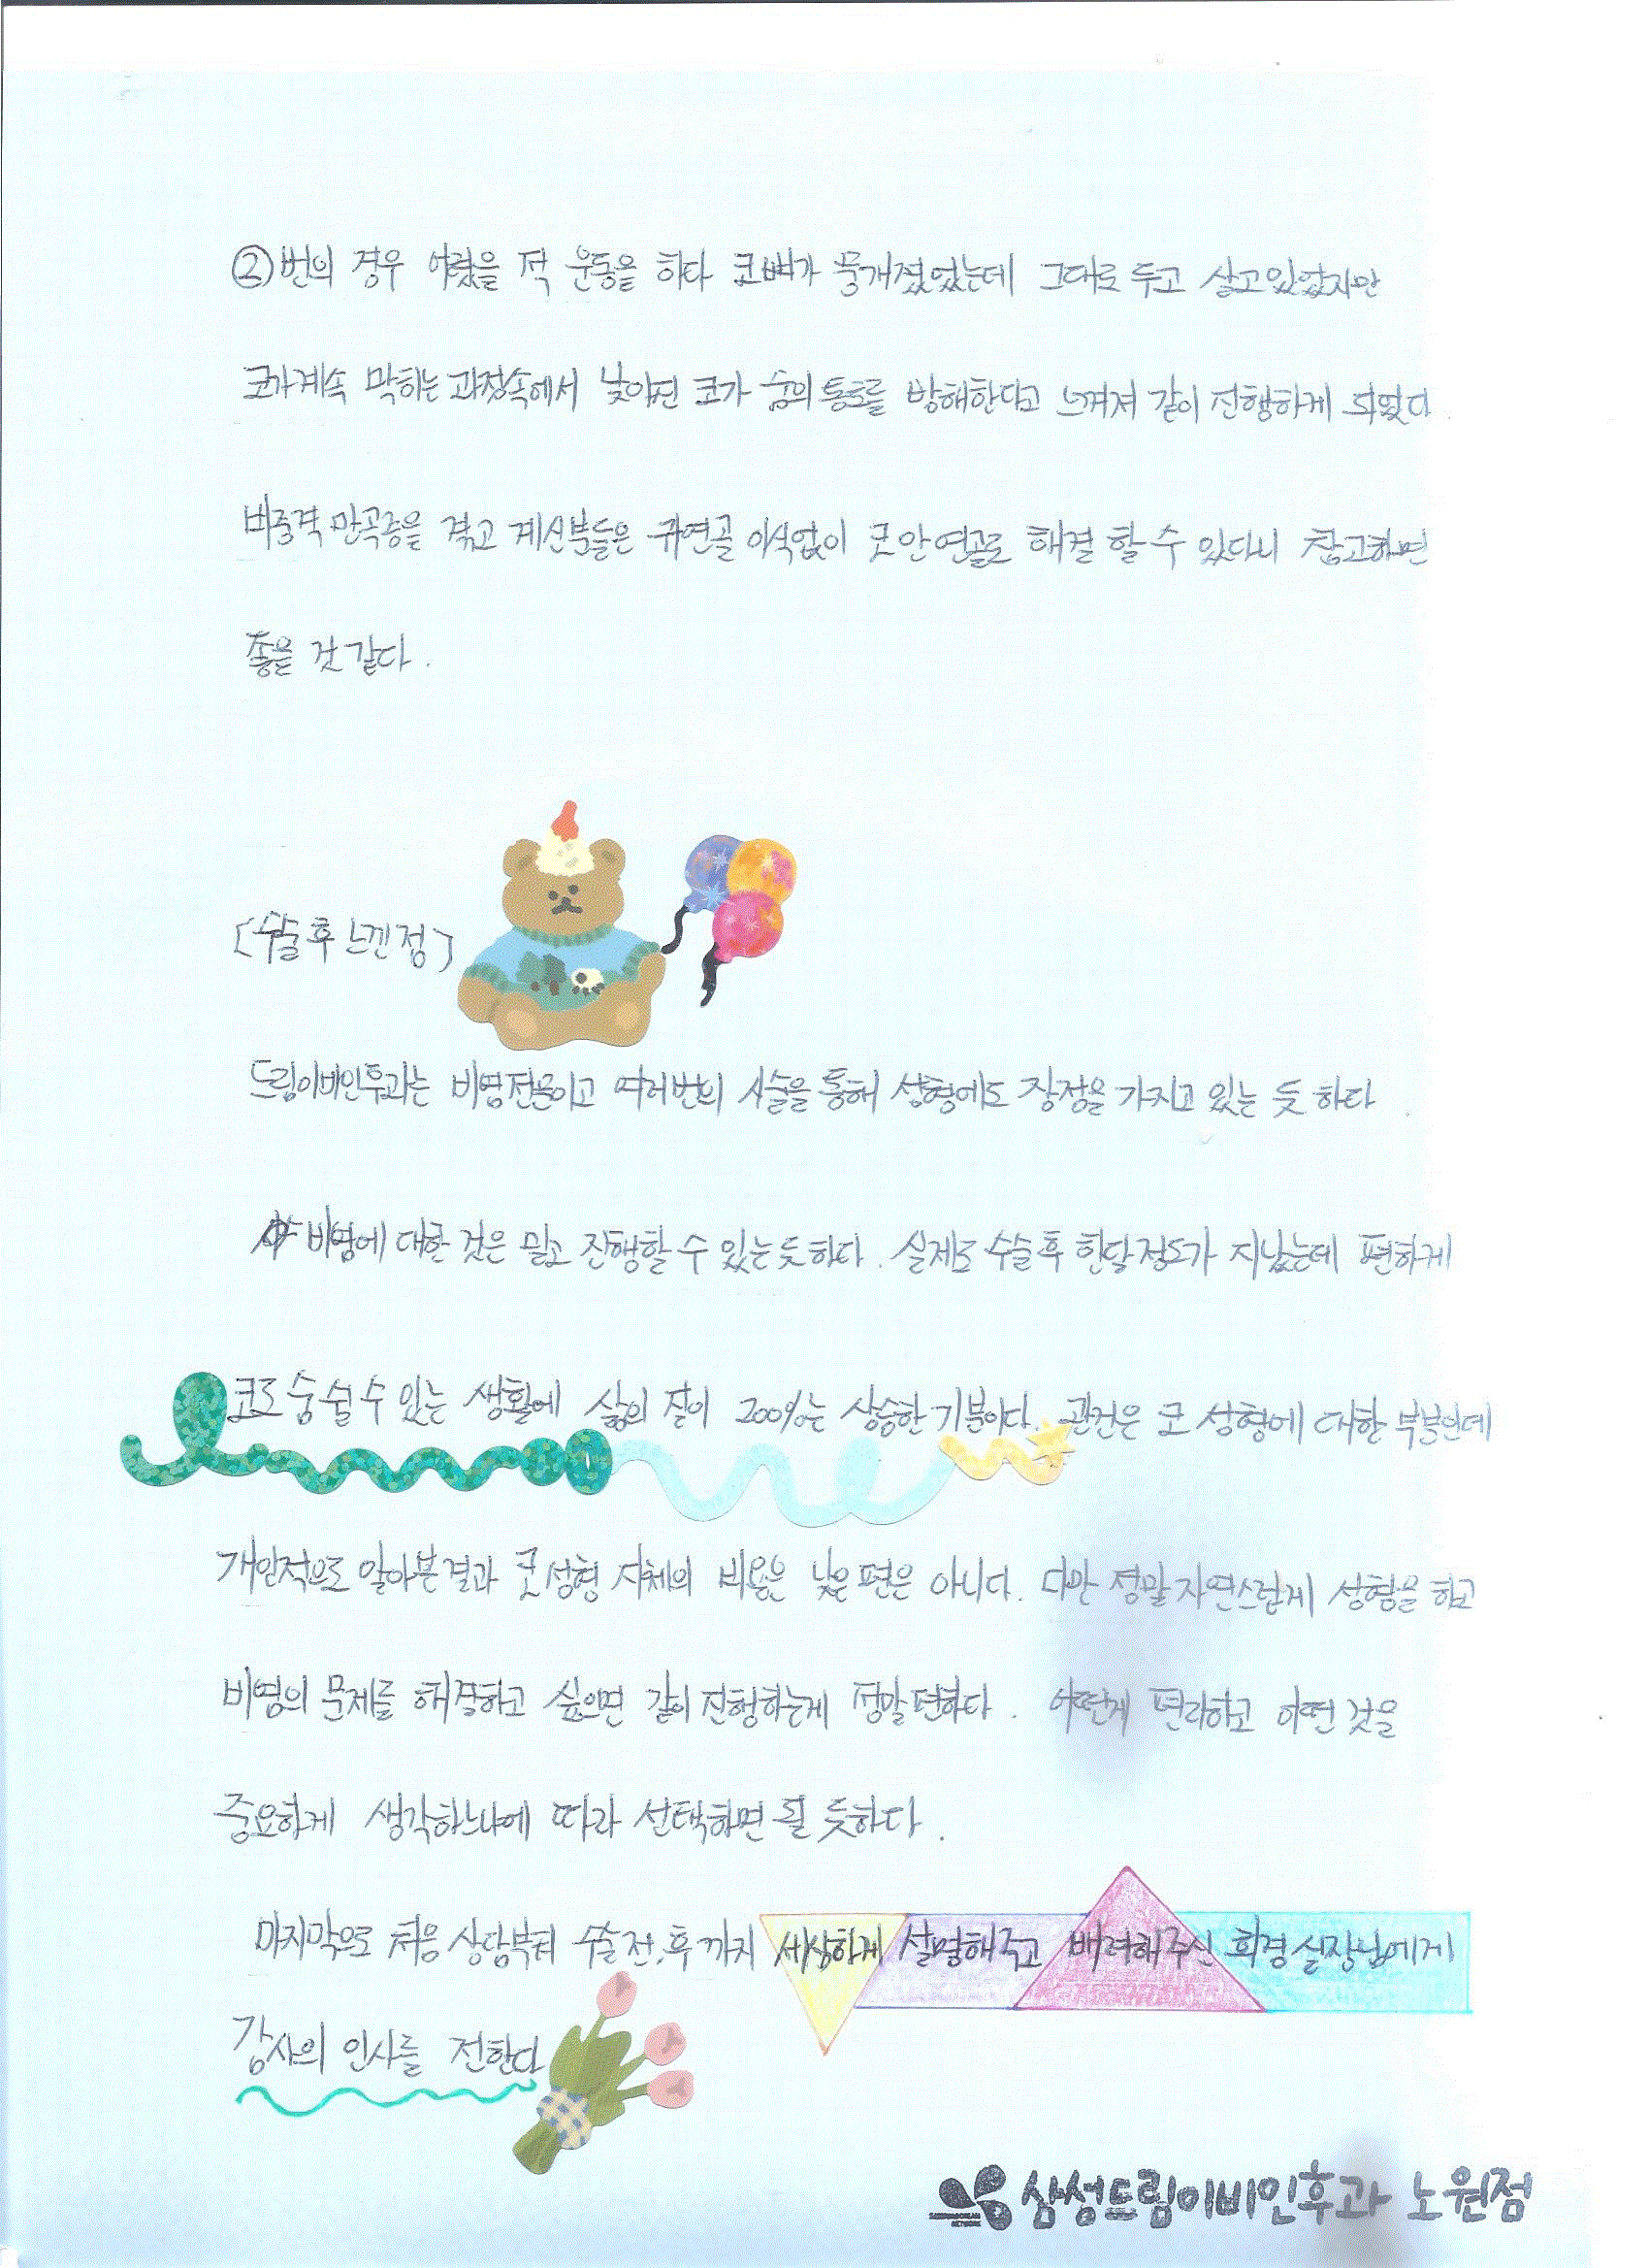 ②번의 경우 어렸을 적 운동을 하다 코뼈가 뭉개졌었는데 그대로 두고 살고있었지만
코가계속 막히는 과정속에서 낮아진 코가 숨의 통로를 방해한다고 느껴져 같이 진행하게 되었다.
비중격 만곡증을 겪고 계신분들은 귀연골 이식없이 코 안 연골로 해결 할 수 있다니 참고하면
좋을 것 같다.
[수술 후 느낀 점]
드림이비인후과는 비염전문이고 여러번의 시술을 통해 성형에도 장점을 가지고 있는 듯 하다.
비염에 대한 것은 믿고 진행할 수 있는 듯 하다. 실제로 수술 후 한달정도가 지났는데 편하게
코로 숨쉴 수 있는 생활에 삶의 질이 200%는 상승한 기분이다. 관건은 코 성형에 대한 부분인데
개인적으로 알아본 결과 코 성형 자체의 비용은 낮은 편은 아니다. 다만 정말 자연스럽게 성형을 하고
비염의 문제를 해결하고 싶으면 같이 진행하는게 정말 편하다. 어떤게 편리하고 어떤 것을
중요하게 생각하느냐에 따라 선택하면 될 듯하다.
마지막으로 처음 상담부터 수술 전.후 까지 세상하게 설명해주고 배려해주신 희경 실장님에게
감사의 인사를 전한다
삼성드림이비인후과 노원점